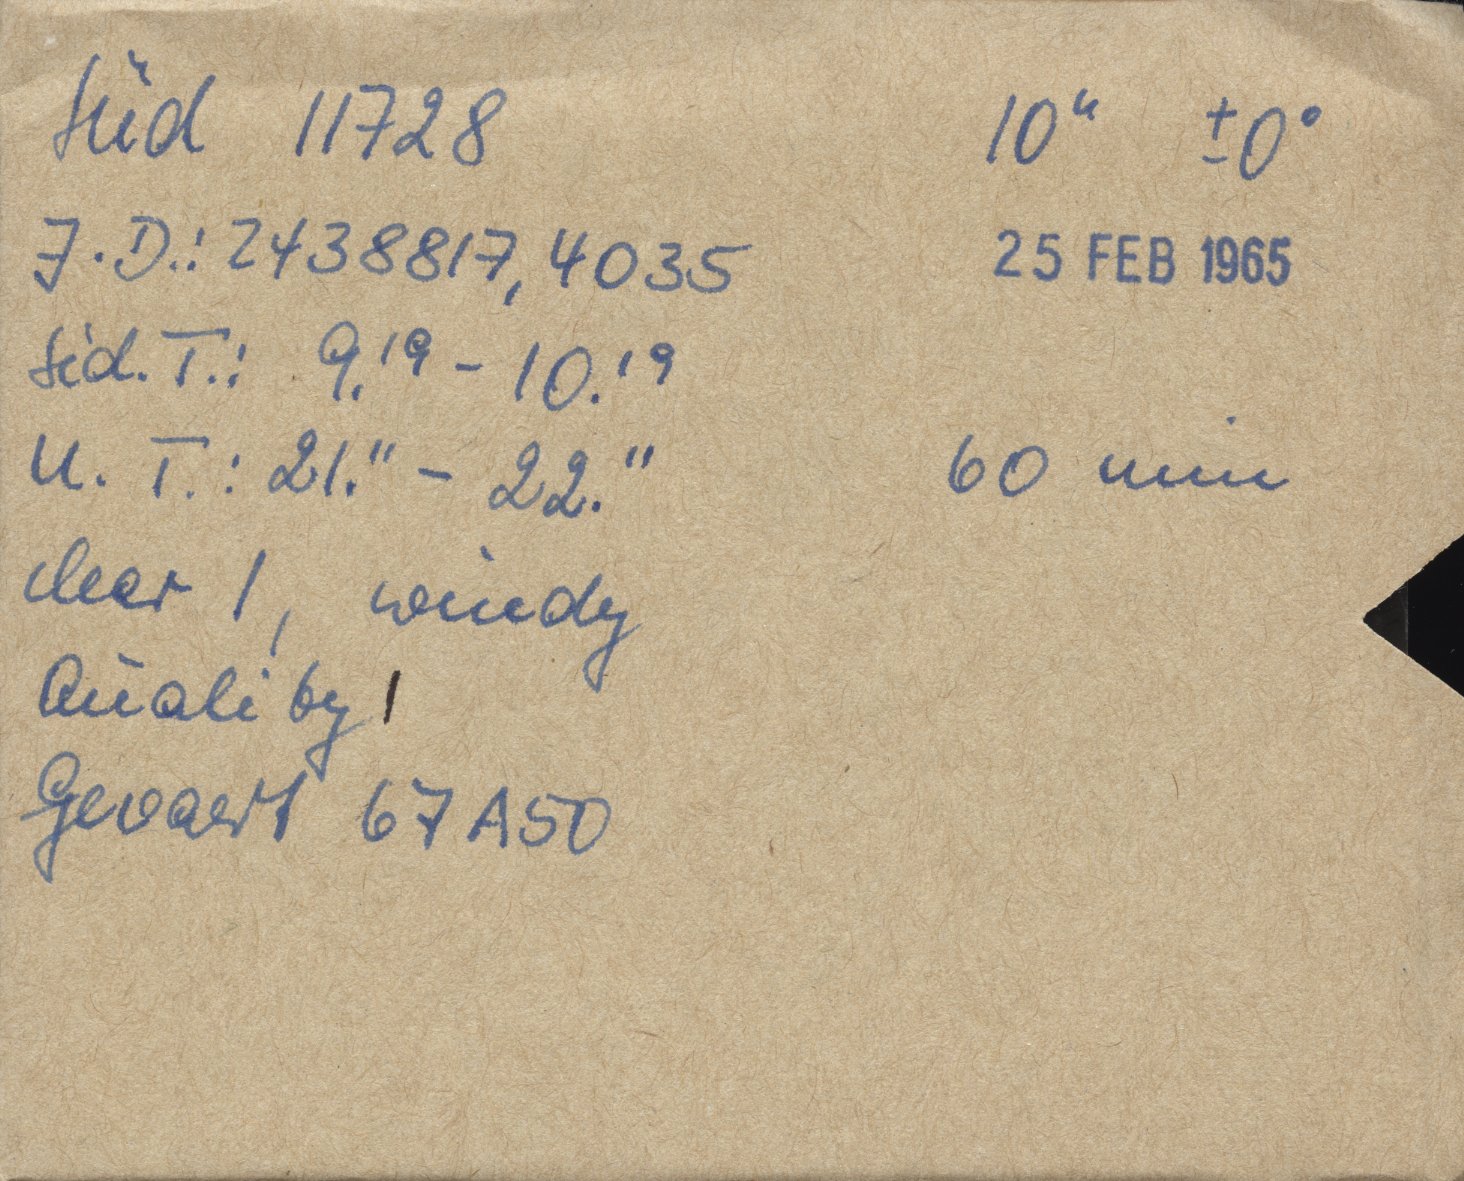 Süd 11728 10ʰ ±0°
J.D.: 2438817,4035 25 FEB 1965
Sid. T.: 9.¹⁹ – 10.¹⁹
U. T.: 21.¹¹ – 22.¹¹ 60 min
clear 1, windy
Quality 1
Gevaert 67A50